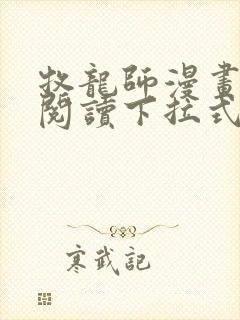 牧龍師漫畫
閱讀下拉式
寒武記